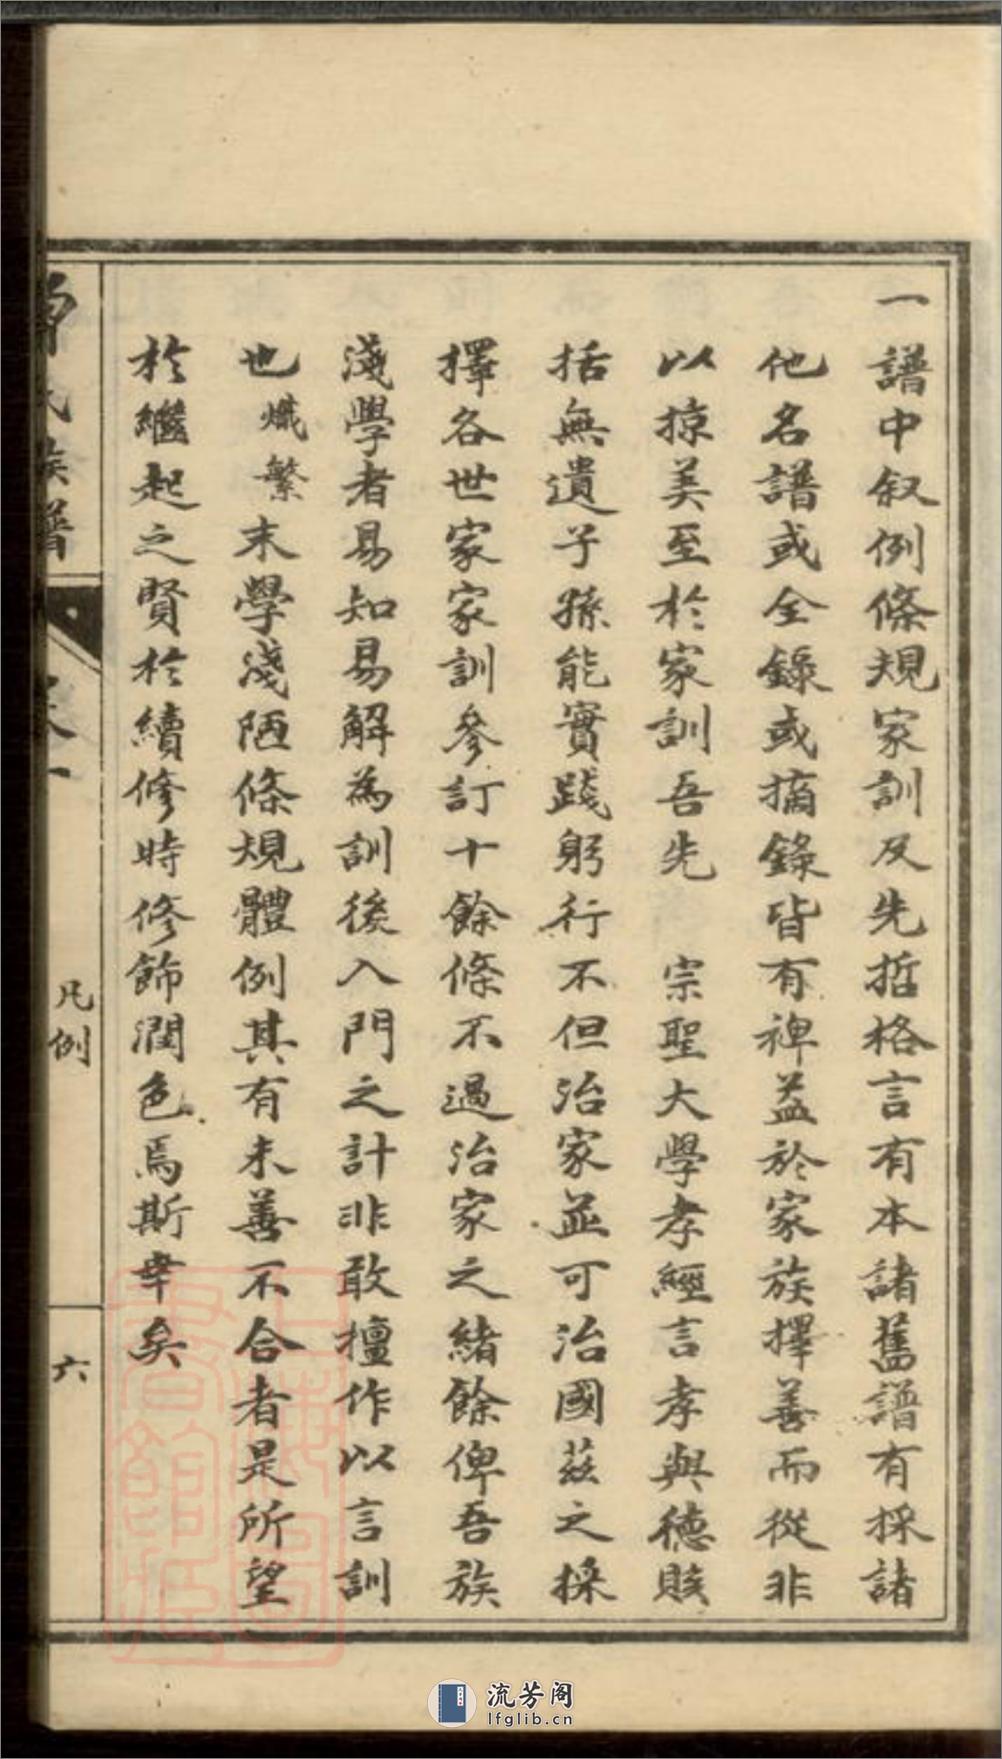 一譜中叙例條規家訓及先哲格言有本諸舊譜有採諸
他名譜或全錄或摘錄皆有裨益於家族擇善而從非
以掠美至於家訓吾先　宗聖大學孝經言孝與德賅
括無遺子孫能實踐躬行不但治家並可治國茲之採
擇各世家家訓參訂十餘條不過治家之緒餘俾吾族
淺學者易知易解為訓後入門之計非敢擅作以言訓
也熾繁末學淺陋條規體例其有未善不合者是所望
於繼起之賢於續修時修飾潤色焉斯幸矣
氏族譜
卷一
凡例
六
上海圖書館藏
流芳阁
lfglib.cn